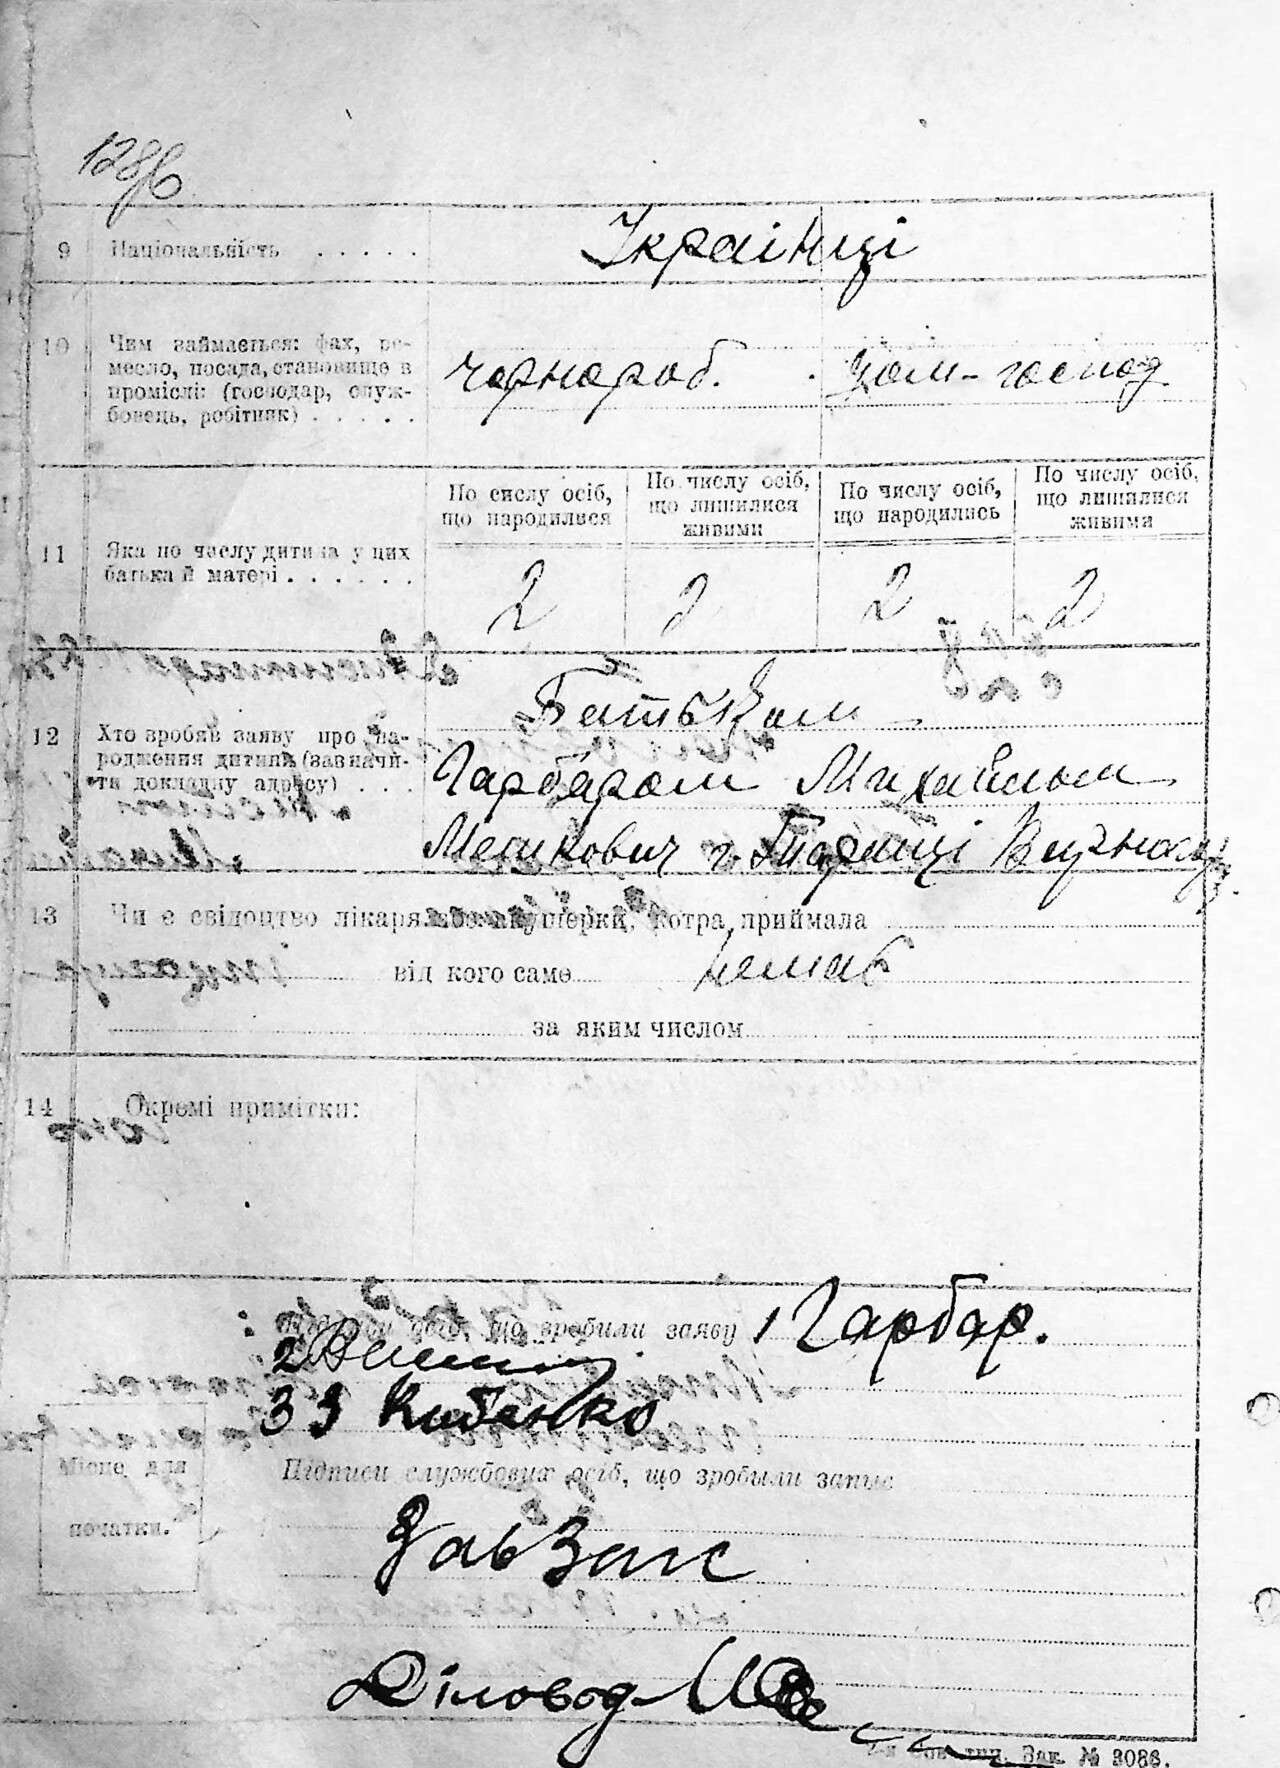 9 Національність . . . . . Українці
10 Чим займається: фах, ре-
месло, посада, становище в
промислі: (господар, служ-
бовець, робітник) . . . . .
чорнороб. дом-господ
По сислу осіб, що народилися
По числу осіб, що лишилися живими
По числу осіб, що народились
По числу осіб, що лишилися живими
11 Яка по числу дитина у цих
батька й матері . . . . . .
2 2 2 2
12 Хто зробив заяву про на-
родження дитини (зазначи-
ти докладну адресу) . . .
Батьком
Гарбаром Михайлом
13 Чи є свідоцтво лікаря або акушерки, котра приймала
від кого саме немає
за яким числом
14 Окремі примітки:
Підписи осіб, що зробили заяву 1 Гарбар.
2
3 Кибенко
Місце для
початки.
Підписи службових осіб, що зробыли запис
ЗавЗагс
Діловод
Зак. № 3086.